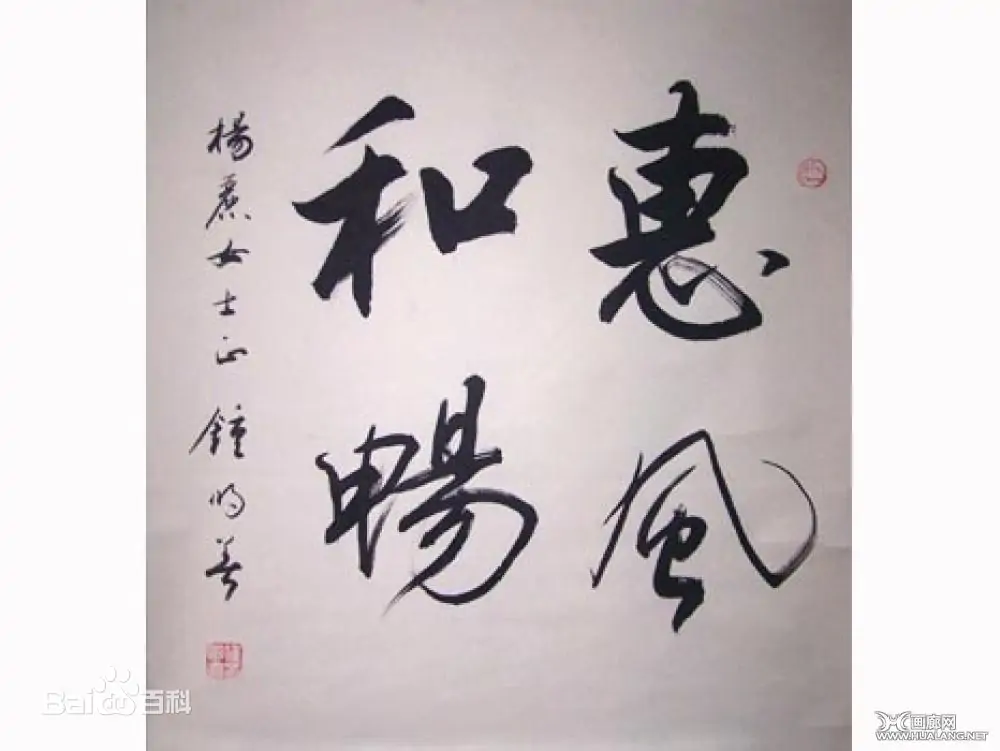 惠風
和暢
楊麗女士正 鐘明善
Baidu百科
画廊网
WWW.HUALANG.NET